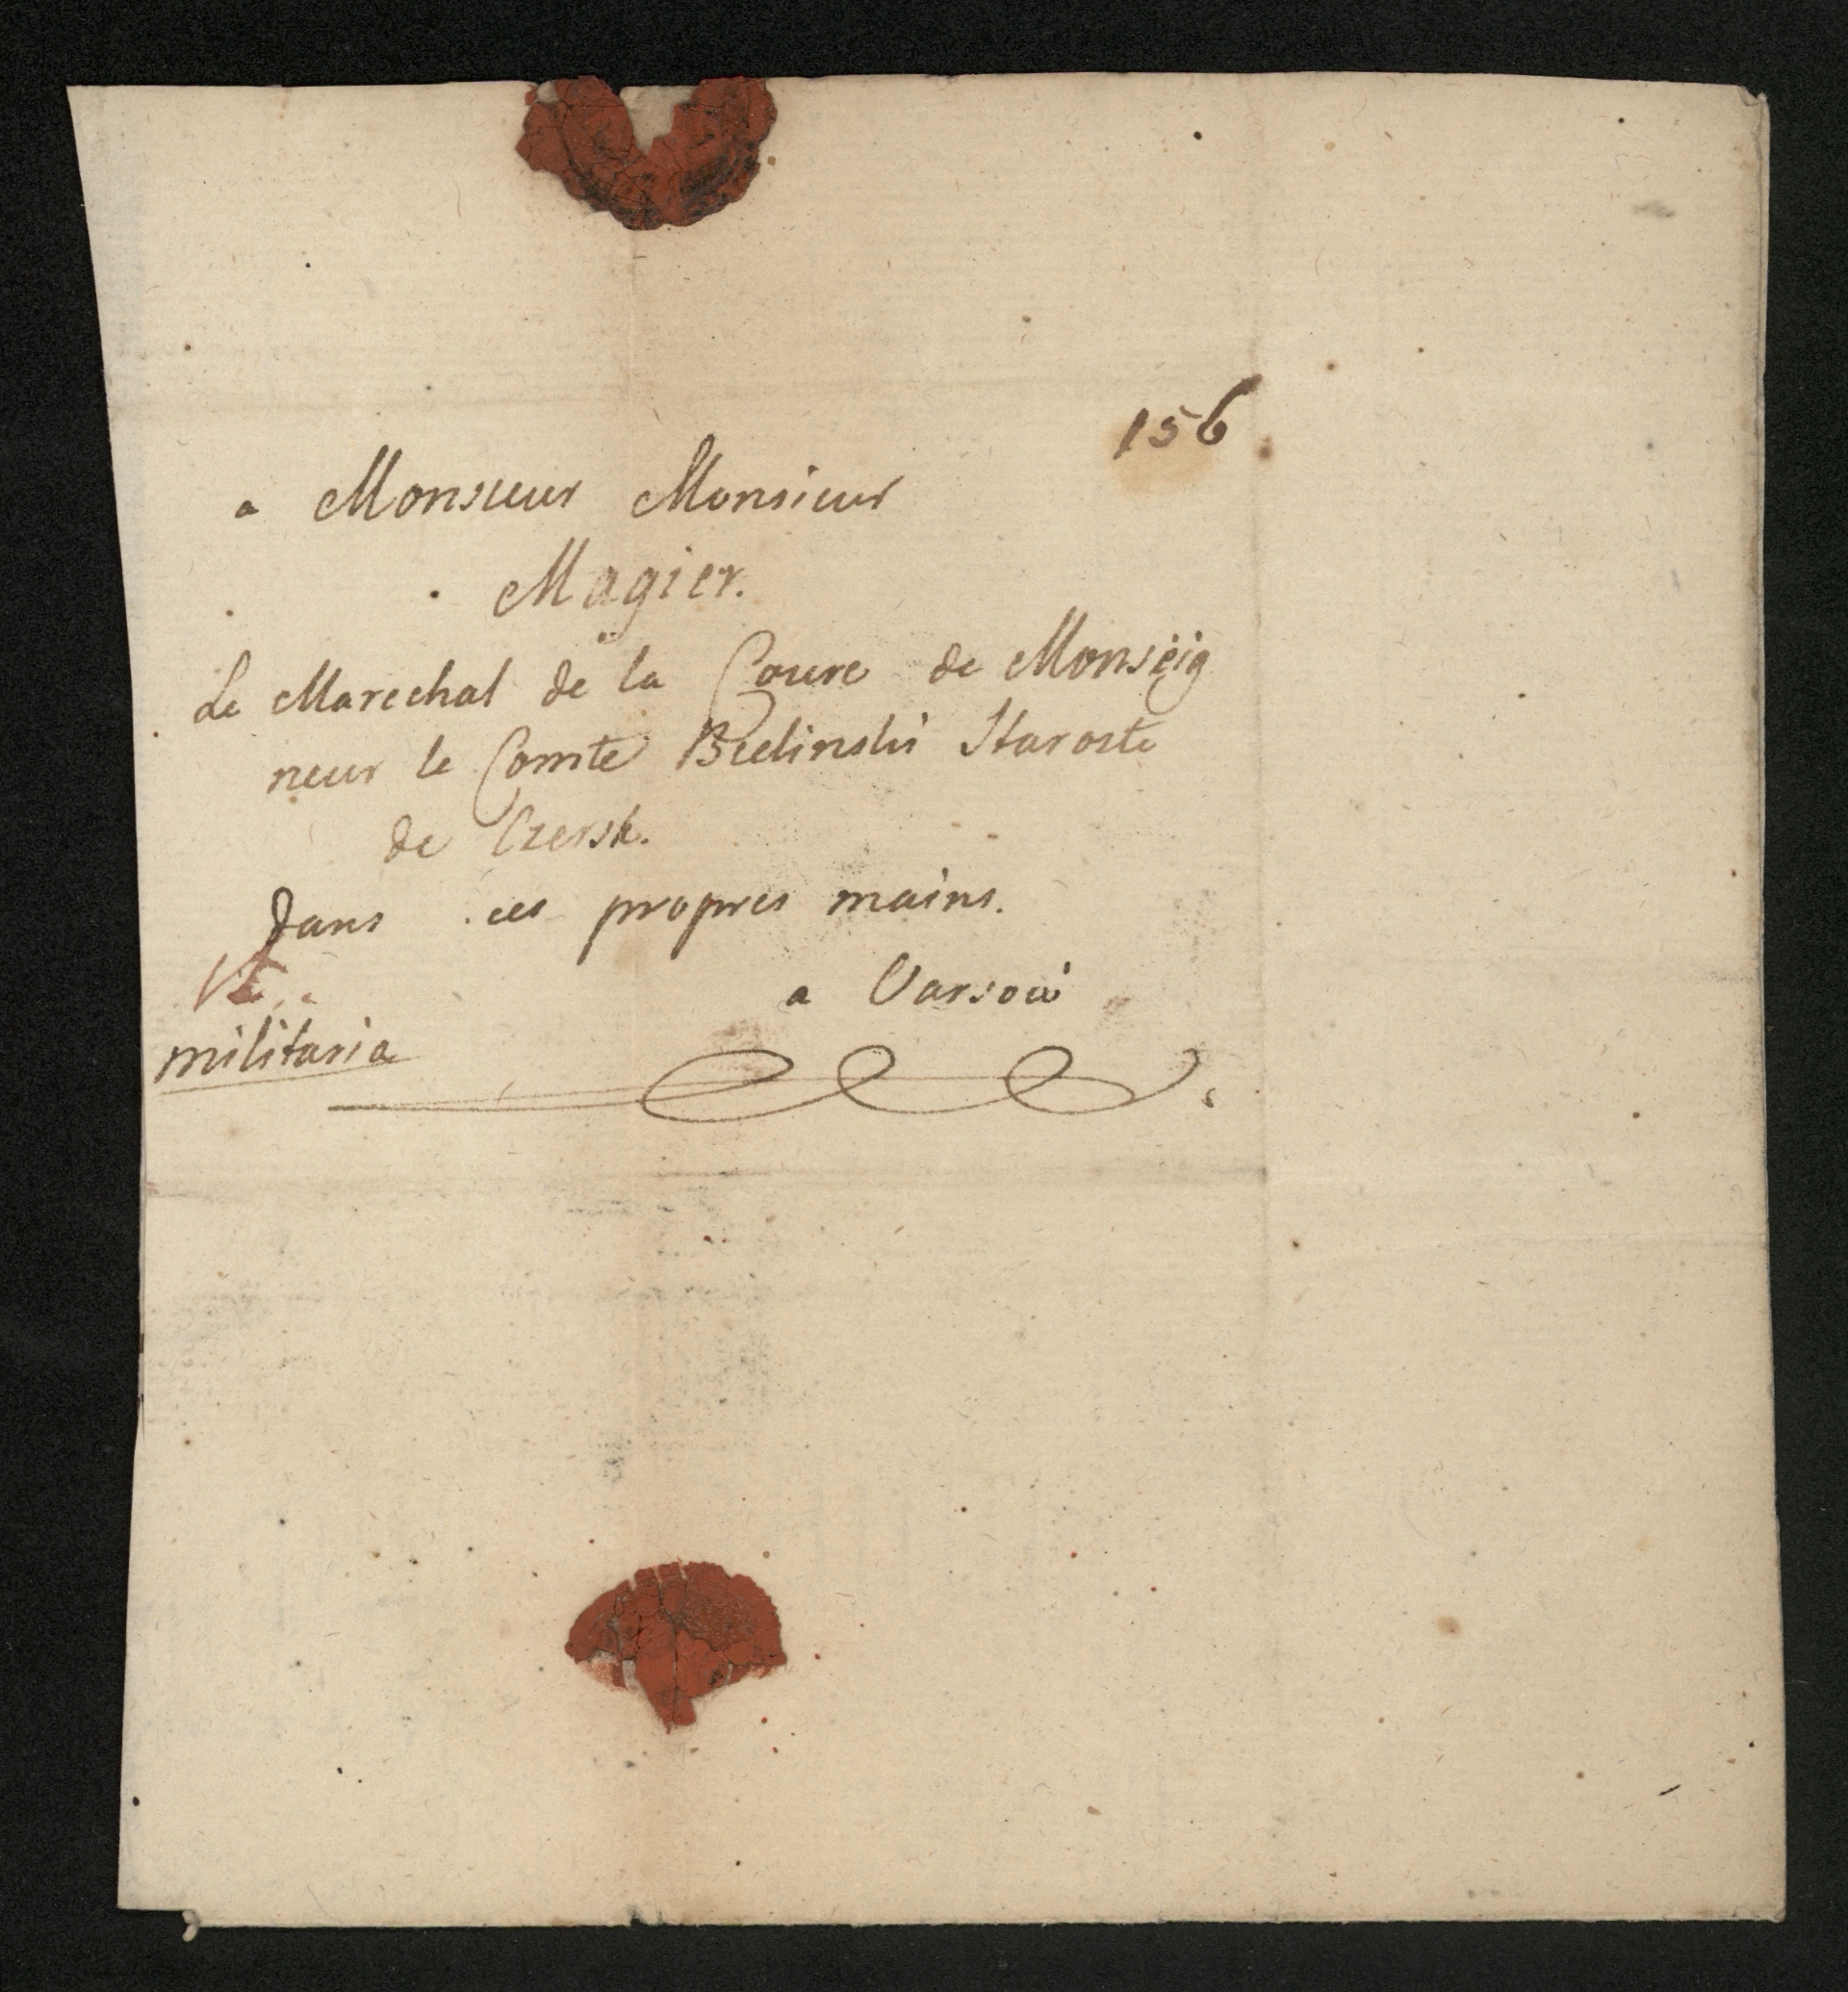 156
a Monsieur Monsieur
Magier.
Le Marechal de la Coure de Monseig
neur le Comte Bielinski Staroste
de Czersk.
Dans ces propres mains.
a Varsow
militaria